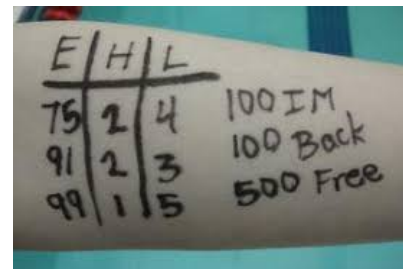 E H L
75 2 4 100 IM
91 2 3 100 Back
99 1 5 500 Free